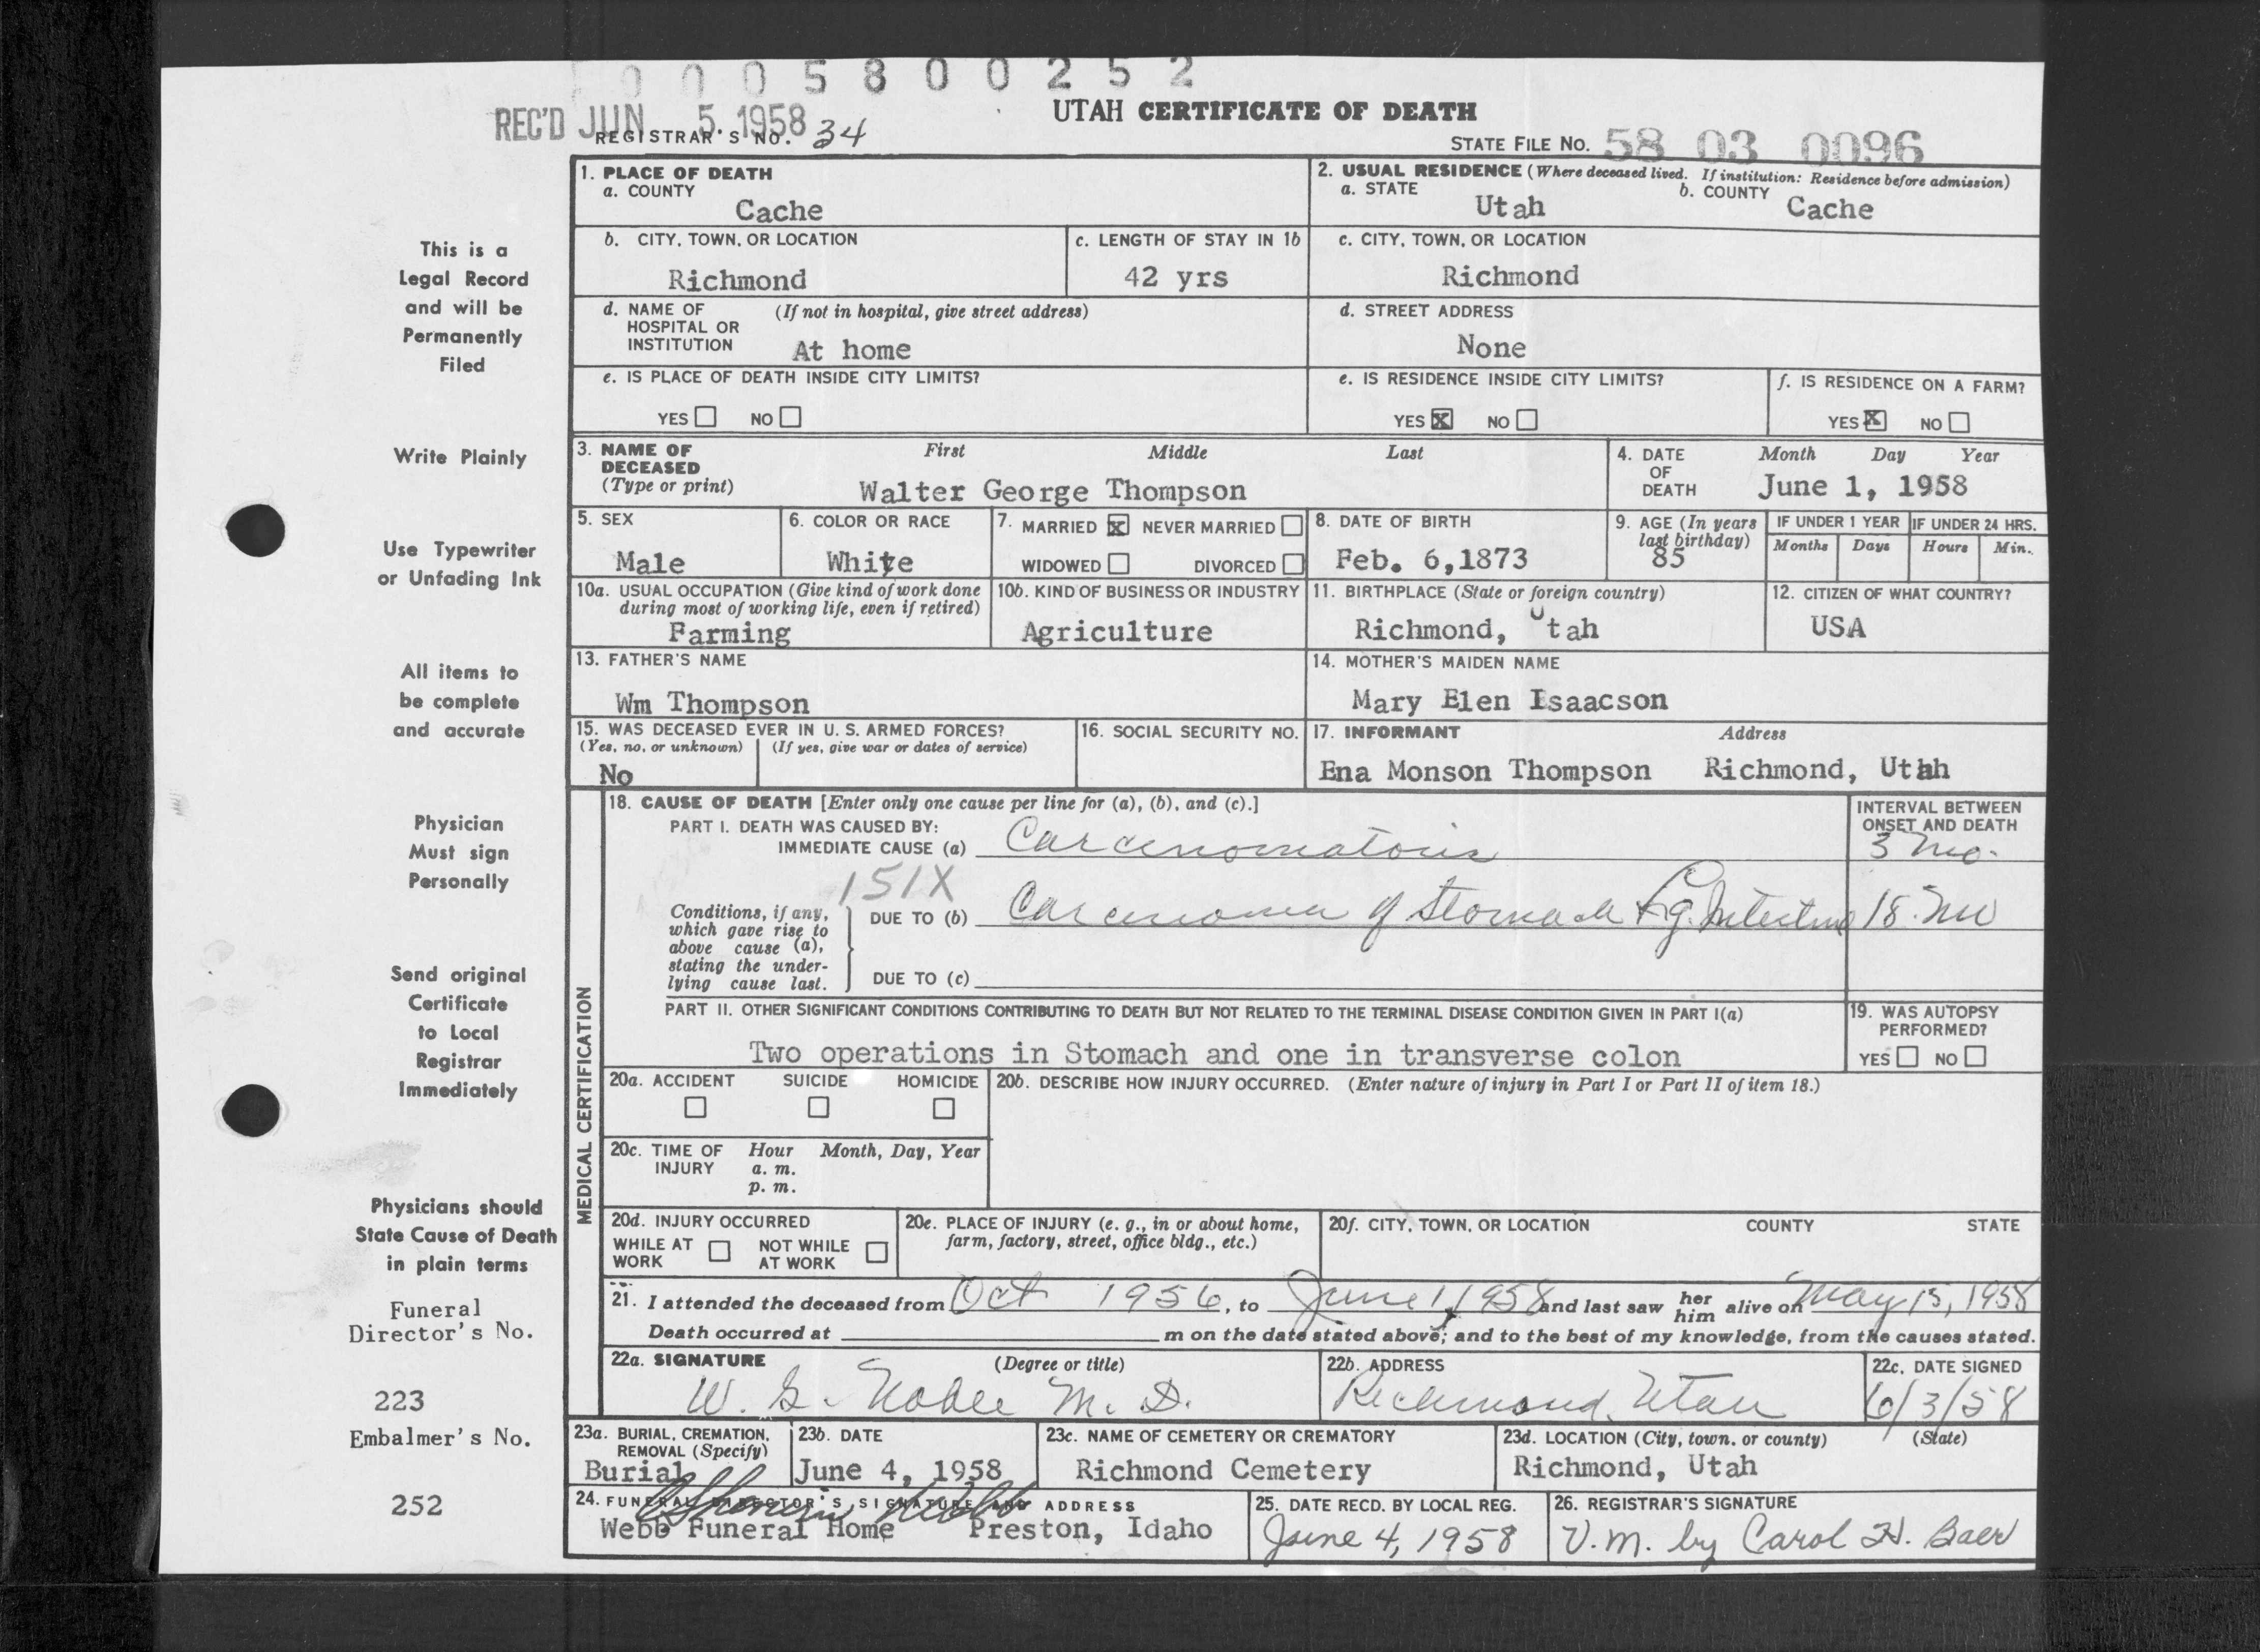 0005800252
REC'D JUN 5 1958
UTAH CERTIFICATE OF DEATH
REGISTRAR'S NO. 34
STATE FILE No. 58 03 0096
This is a
Legal Record
and will be
Permanently
Filed
Write Plainly
Use Typewriter
or Unfading Ink
All items to
be complete
and accurate
Physician
Must sign
Personally
Send original
Certificate
to Local
Registrar
Immediately
Physicians should
State Cause of Death
in plain terms
Funeral
Director's No.
223
Embalmer's No.
252
1. PLACE OF DEATH
a. COUNTY
Cache
2. USUAL RESIDENCE (Where deceased lived. If institution: Residence before admission)
a. STATE
Utah
b. COUNTY
Cache
b. CITY, TOWN, OR LOCATION
Richmond
c. LENGTH OF STAY IN 1b
42 yrs
c. CITY, TOWN, OR LOCATION
Richmond
d. NAME OF (If not in hospital, give street address)
HOSPITAL OR
INSTITUTION At home
d. STREET ADDRESS
None
e. IS PLACE OF DEATH INSIDE CITY LIMITS?
YES NO
e. IS RESIDENCE INSIDE CITY LIMITS?
YES X NO
f. IS RESIDENCE ON A FARM?
YES X NO
3. NAME OF First Middle Last
DECEASED
(Type or print) Walter George Thompson
4. DATE Month Day Year
OF
DEATH June 1, 1958
5. SEX
Male
6. COLOR OR RACE
White
7. MARRIED X NEVER MARRIED
WIDOWED DIVORCED
8. DATE OF BIRTH
Feb. 6,1873
9. AGE (In years
last birthday)
85
IF UNDER 1 YEAR IF UNDER 24 HRS.
Months Days Hours Min.
10a. USUAL OCCUPATION (Give kind of work done
during most of working life, even if retired)
Farming
10b. KIND OF BUSINESS OR INDUSTRY
Agriculture
11. BIRTHPLACE (State or foreign country)
Richmond, Utah
12. CITIZEN OF WHAT COUNTRY?
USA
13. FATHER'S NAME
Wm Thompson
14. MOTHER'S MAIDEN NAME
Mary Elen Isaacson
15. WAS DECEASED EVER IN U. S. ARMED FORCES?
(Yes, no, or unknown) (If yes, give war or dates of service)
No
16. SOCIAL SECURITY NO.
17. INFORMANT Address
Ena Monson Thompson Richmond, Utah
MEDICAL CERTIFICATION
18. CAUSE OF DEATH [Enter only one cause per line for (a), (b), and (c).]
INTERVAL BETWEEN
ONSET AND DEATH
PART I. DEATH WAS CAUSED BY:
IMMEDIATE CAUSE (a) Carcenomatosis 3 mo.
151X
Conditions, if any,
which gave rise to
above cause (a),
stating the under-
lying cause last.
DUE TO (b) Carcenoma of Stomach & Lg. Intestine 18. mo
DUE TO (c)
PART II. OTHER SIGNIFICANT CONDITIONS CONTRIBUTING TO DEATH BUT NOT RELATED TO THE TERMINAL DISEASE CONDITION GIVEN IN PART I(a)
Two operations in Stomach and one in transverse colon
19. WAS AUTOPSY
PERFORMED?
YES NO
20a. ACCIDENT SUICIDE HOMICIDE
20b. DESCRIBE HOW INJURY OCCURRED. (Enter nature of injury in Part I or Part II of item 18.)
20c. TIME OF Hour Month, Day, Year
INJURY a. m.
p. m.
20d. INJURY OCCURRED
WHILE AT NOT WHILE
WORK AT WORK
20e. PLACE OF INJURY (e. g., in or about home,
farm, factory, street, office bldg., etc.)
20f. CITY, TOWN, OR LOCATION COUNTY STATE
21. I attended the deceased from Oct 1956, to June 1, 1958 and last saw her him alive on May 15, 1958
Death occurred at m on the date stated above; and to the best of my knowledge, from the causes stated.
22a. SIGNATURE (Degree or title)
W. G. Noble M. D.
22b. ADDRESS
Richmond, Utah
22c. DATE SIGNED
6/3/58
23a. BURIAL, CREMATION,
REMOVAL (Specify)
Burial
23b. DATE
June 4, 1958
23c. NAME OF CEMETERY OR CREMATORY
Richmond Cemetery
23d. LOCATION (City, town, or county) (State)
Richmond, Utah
24. FUNERAL DIRECTOR'S SIGNATURE AND ADDRESS
Webb
Webb Funeral Home Preston, Idaho
25. DATE RECD. BY LOCAL REG.
June 4, 1958
26. REGISTRAR'S SIGNATURE
V. M. by Carol H. Baer